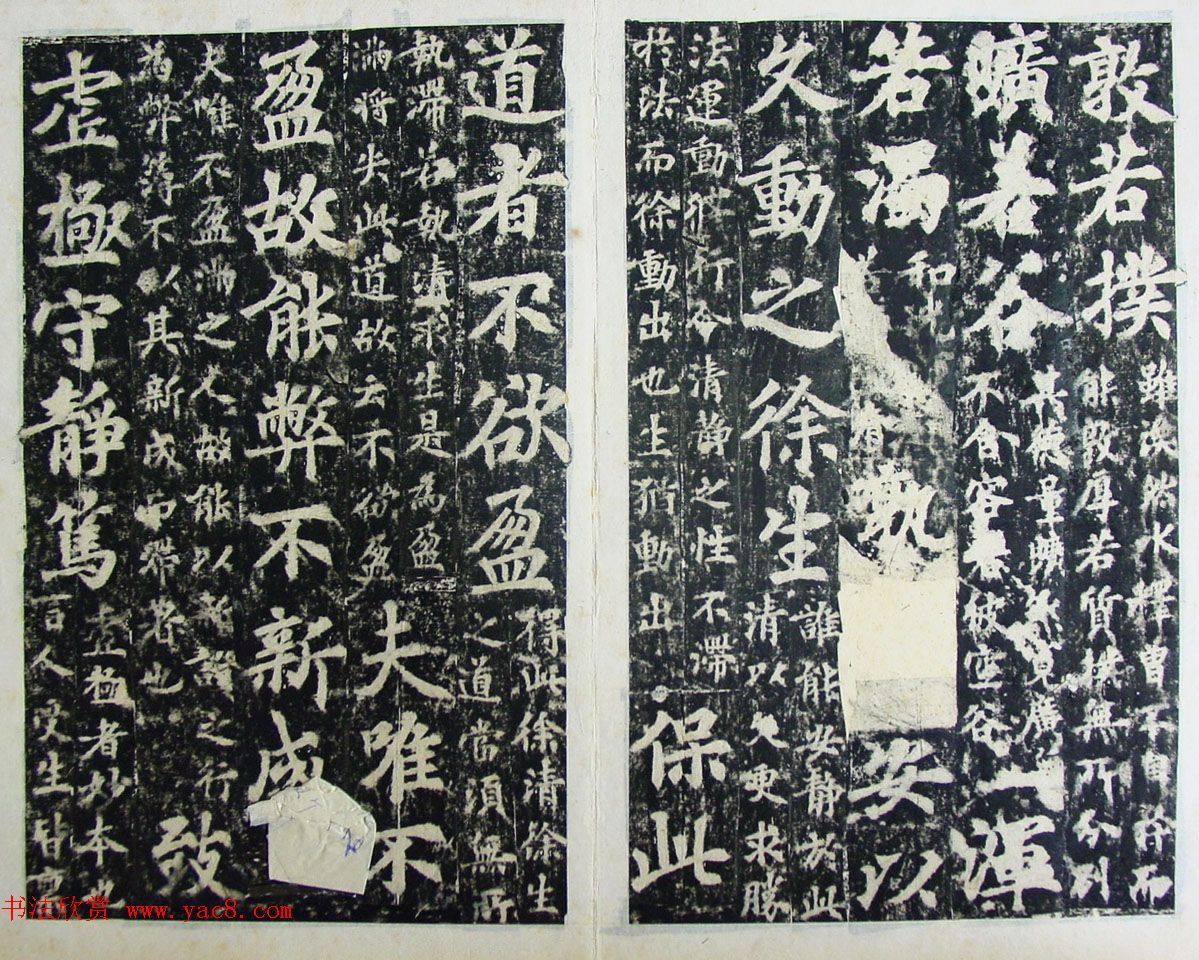 敦若撲雖渙然冰釋曾不自而
能敦厚若質樸無所分別
曠若谷其德量曠然寬廣
不含容若彼空谷渾
若濁和
孰安以
久動之徐生誰能安靜於此
清以久更求勝
法運動修行令清靜之性不滯
於法而徐動出也生猶動出保此
道者不欲盈得此徐清徐生
之道當須無所
執滯若執清求生是為盈
滿將失此道故云不欲盈夫唯不
盈故能弊不新成
夫唯不盈滿之人故能以之行
為弊薄不以其新成而弊者也致
虛極守靜篤虛極者妙本也
言人受生皆
书法欣赏 www.yac8.com